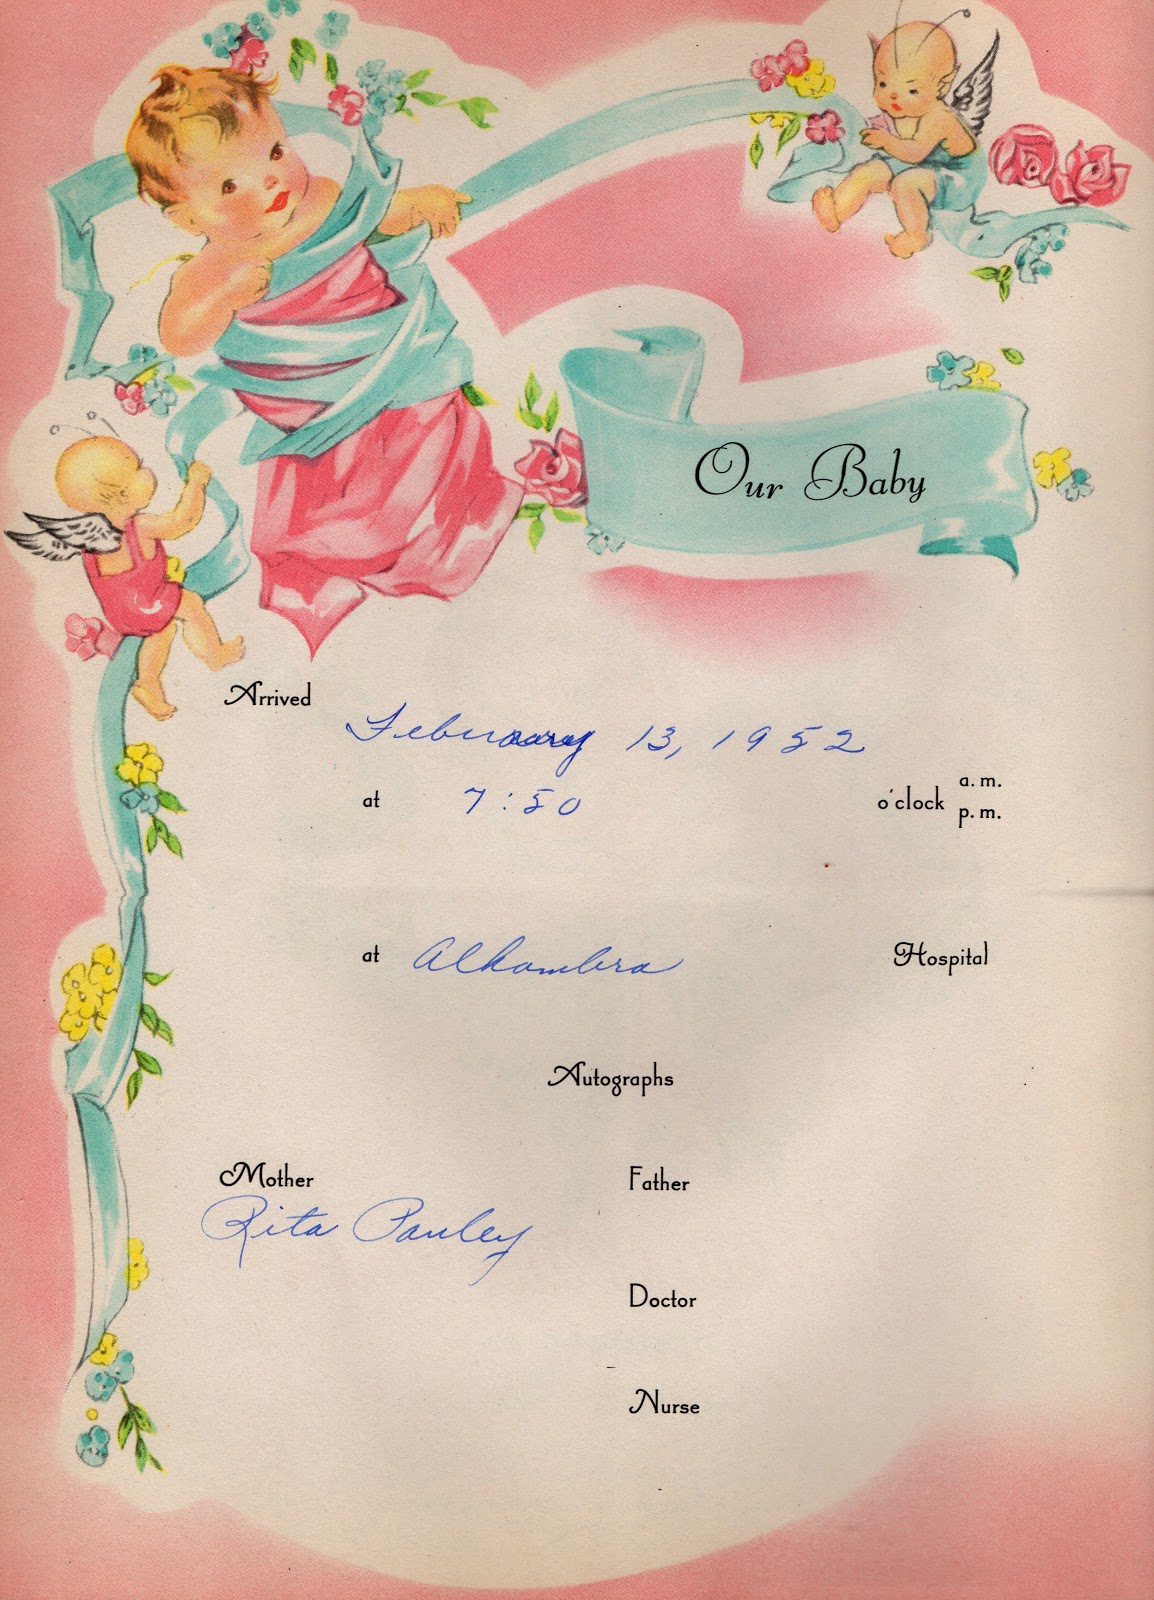 Our Baby
Arrived
February 13, 1952
at 7:50 o'clock a.m.
p.m.
at Alhambra Hospital
Autographs
Mother Father
Rita Pauley
Doctor
Nurse